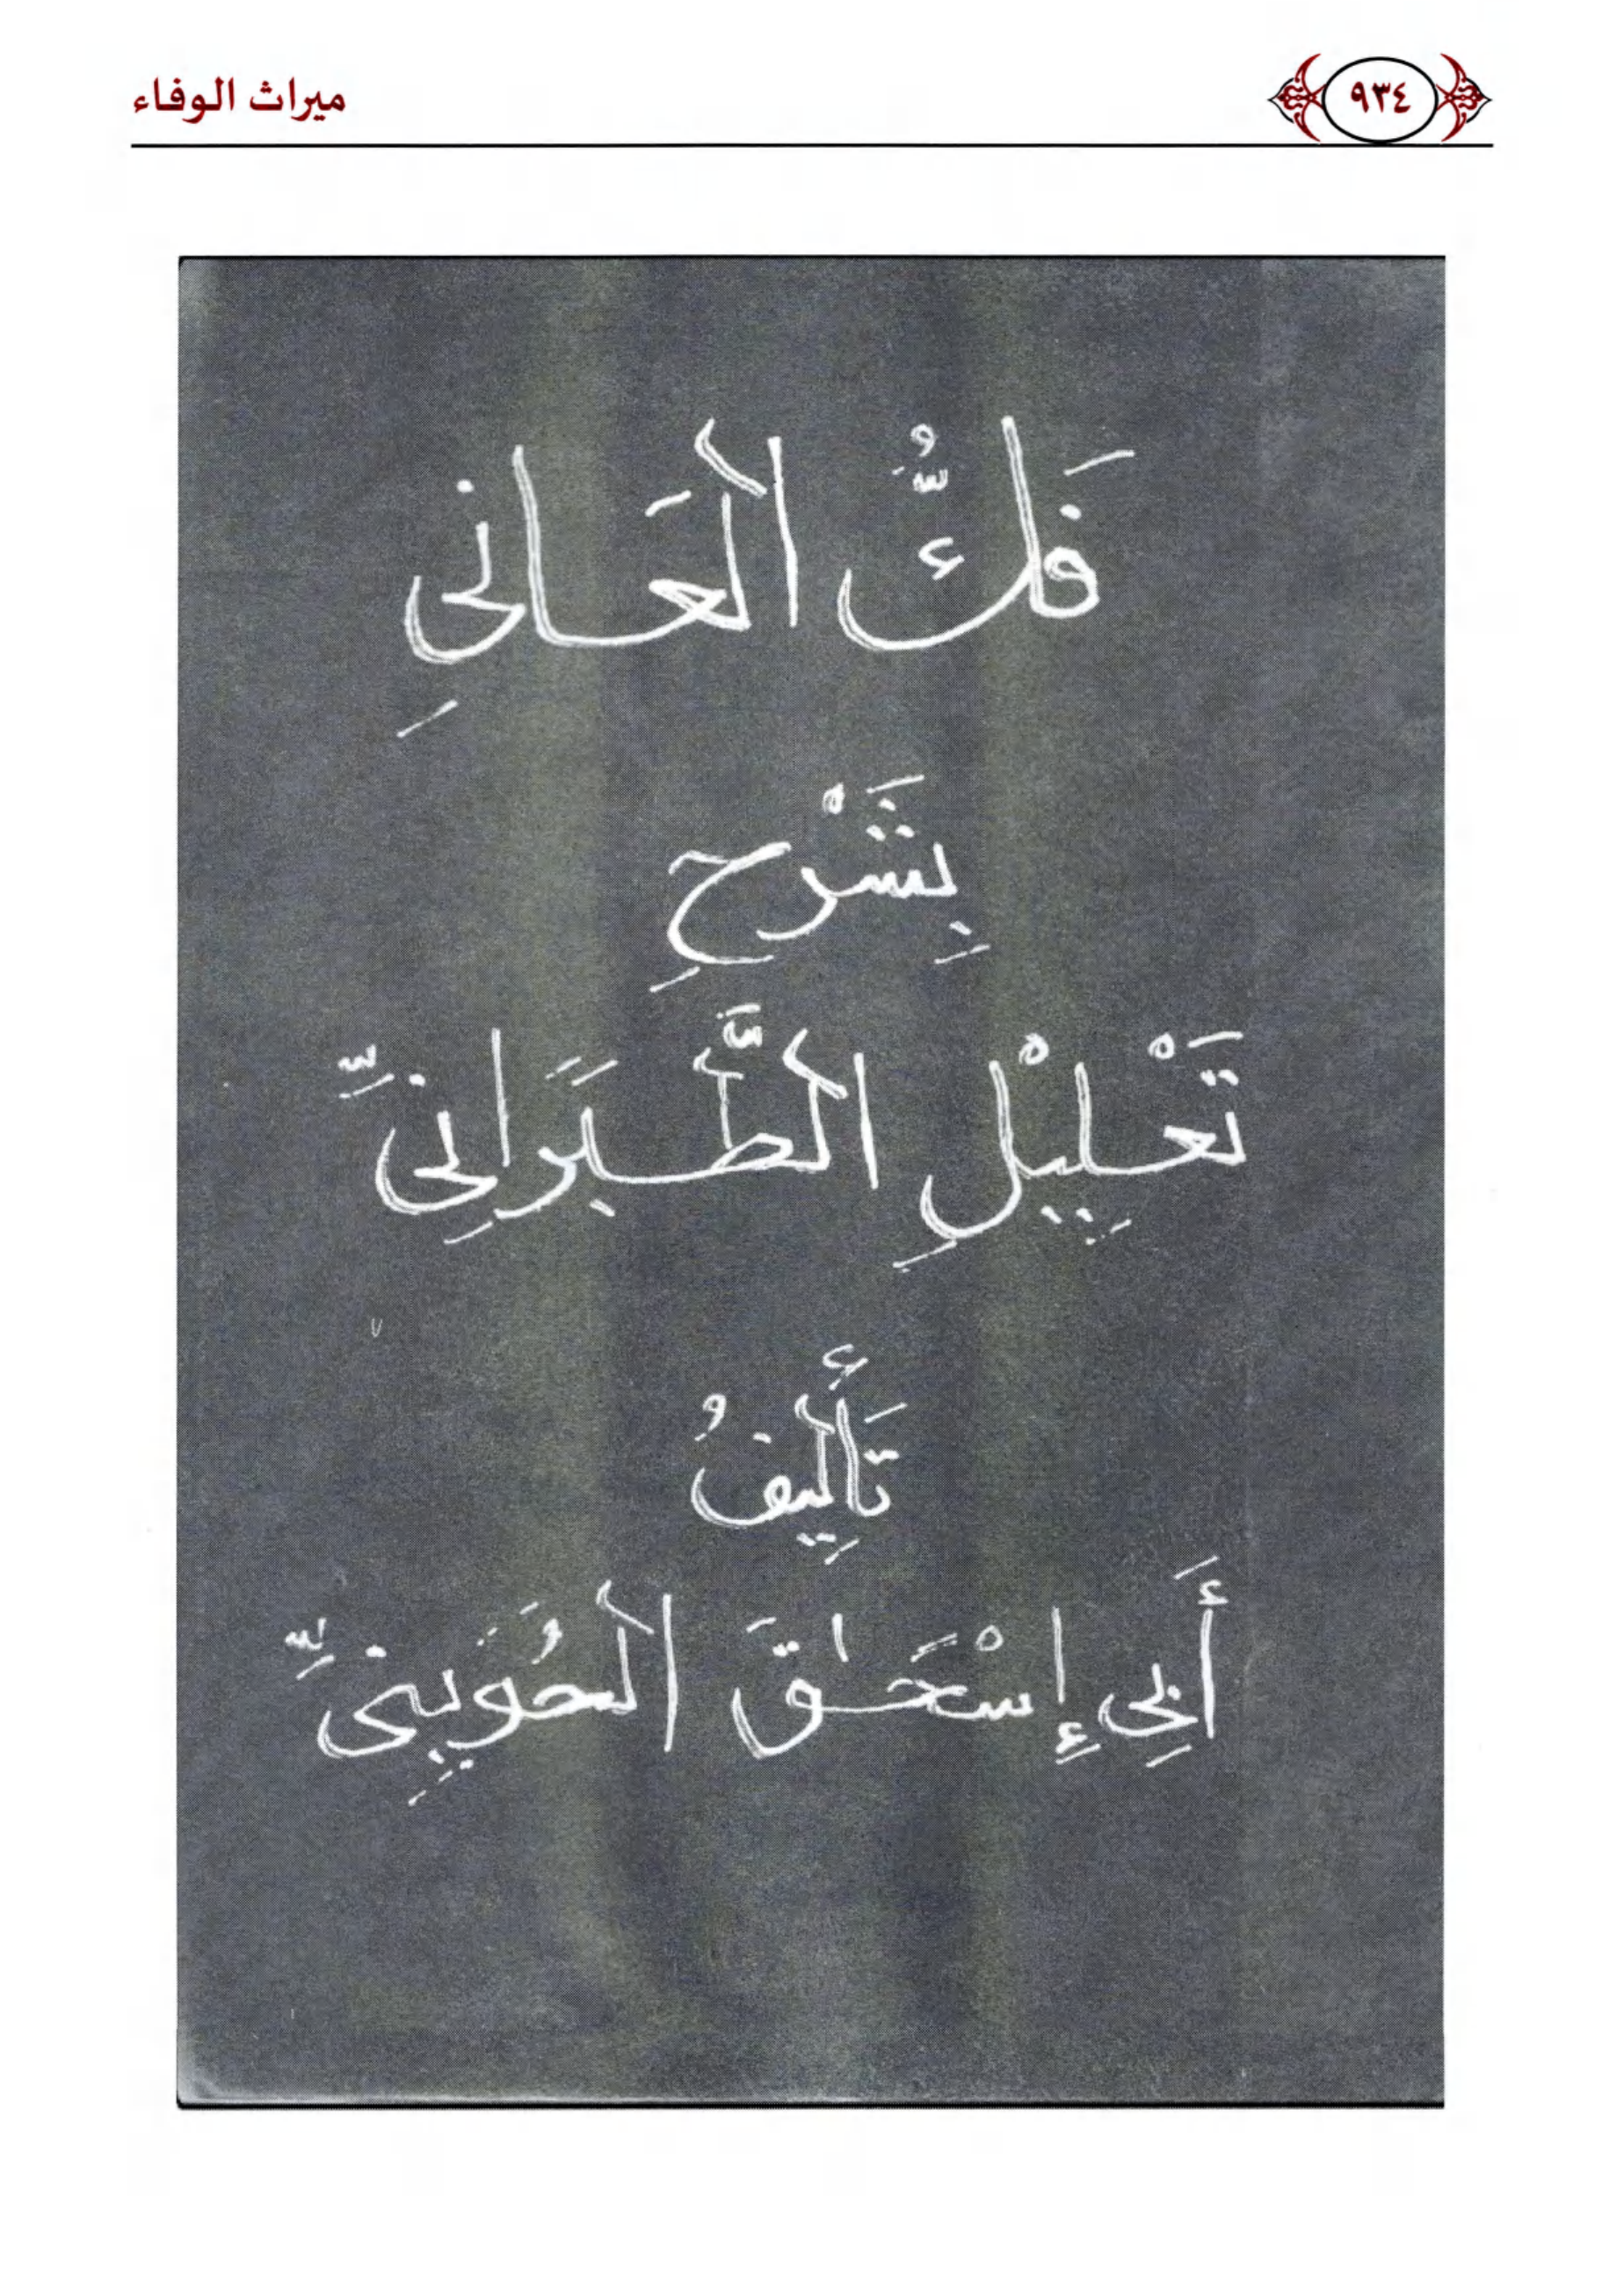 ٩٣٤ ميراث الوفاء
فَكُّ الْعَانِي
بِشَرْحِ
تَعْلِيْلِ الطَّبَرَانِيِّ
تَأْلِيفُ
أَبِي إِسْحَاقَ الْحُوَيْنِيِّ